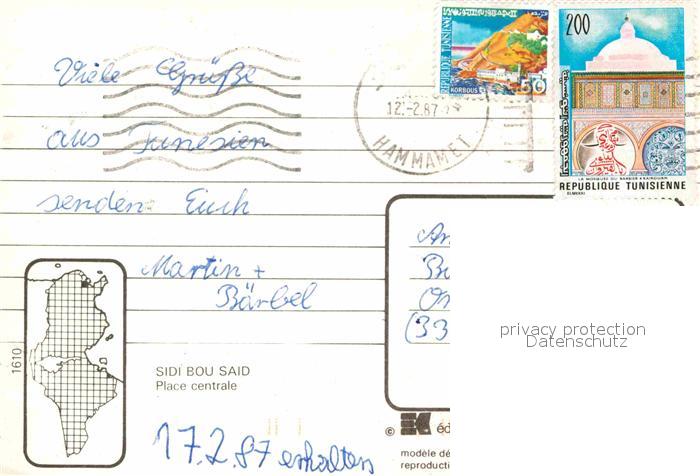 200
REPUBLIQUE TUNISIENNE
50
KORBOUS
Viele Grüße
12.-2.87
HAMMAMET
LA MOSQUEE DU BARBIER KAIROUAN
REPUBLIQUE TUNISIENNE
ELMEKKI
aus Tunesien
senden Euch
Martin +
Bärbel
(33
privacy protection
Datenschutz
1610
SIDI BOU SAID
Place centrale
©
17.2.87 erhalten
modèle dé
reproducti